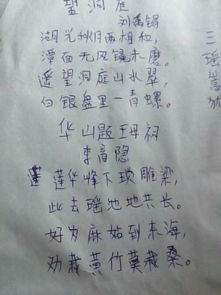 望洞庭
刘禹锡
湖光秋月两相和,
潭面无风镜未磨。
遥望洞庭山水翠,
白银盘里一青螺。
华山题王母祠
李商隐
莲华峰下锁雕梁,
此去瑶池地共长。
好为麻姑到东海,
劝栽黄竹莫栽桑。
三
瑶